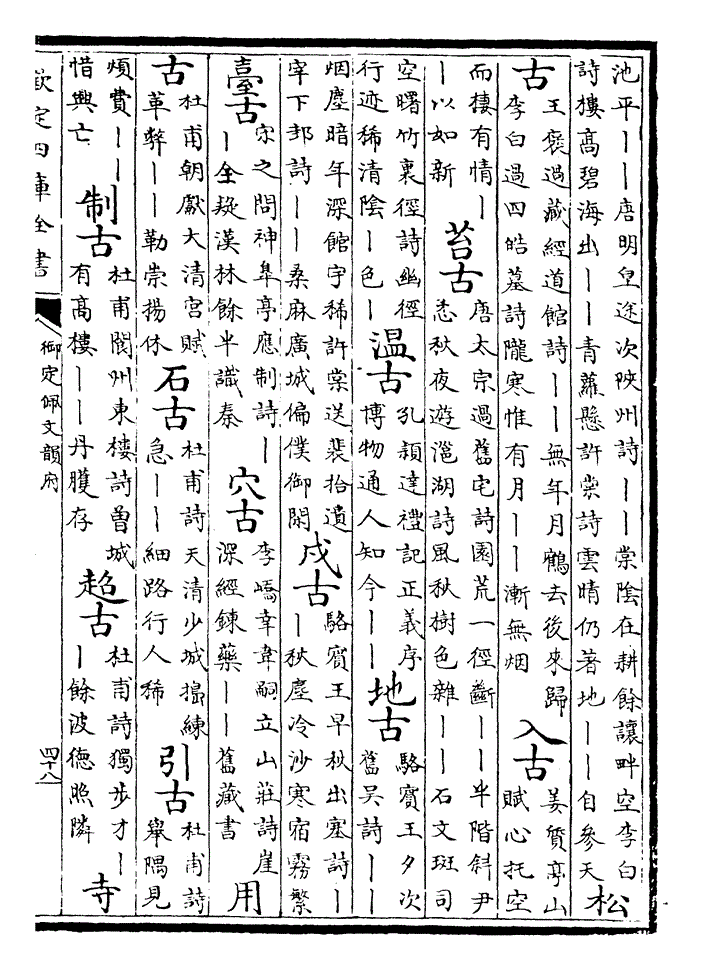 池平｜｜唐明皇途次陝州詩｜｜棠陰在耕餘讓畔空李白
詩樓高碧海出｜｜青蘿懸許棠詩雲晴仍著地｜｜自參天
松
古
王褒過藏經道館詩｜｜無年月鶴去後來歸
李白過四皓墓詩隴寒惟有月｜｜漸無烟
入古
姜質亭山
賦心托空
而棲有情｜
｜以如新
苔古
唐太宗過舊宅詩園荒一徑斷｜｜半階斜尹
悉秋夜遊灉湖詩風秋樹色雜｜｜石文斑司
空曙竹裏徑詩幽徑
行迹稀清陰｜色｜
温古
孔穎達禮記正義序
博物通人知今｜｜
地古
駱賓王夕次
舊吳詩｜｜
烟塵暗年深館宇稀許棠送裴拾遺
宰下邽詩｜｜桑麻廣城偏僕御閑
戍古
駱賓王早秋出塞詩｜
｜秋塵冷沙寒宿霧繁
臺古
宋之問神臯亭應制詩｜
｜全疑漢林餘半識秦
穴古
李嶠幸韋嗣立山莊詩崖
深經鍊藥｜｜舊藏書
用
古
杜甫朝獻大清宮賦
革弊｜｜勒崇揚休
石古
杜甫詩天清少城搗練
急｜｜細路行人稀
引古
杜甫詩
舉隅見
煩費｜｜
惜興亡
制古
杜甫閬州東樓詩曾城
有高樓｜｜丹雘存
超古
杜甫詩獨步才｜
｜餘波德照隣
寺
欽定四庫全書
御定佩文韻府
四十八